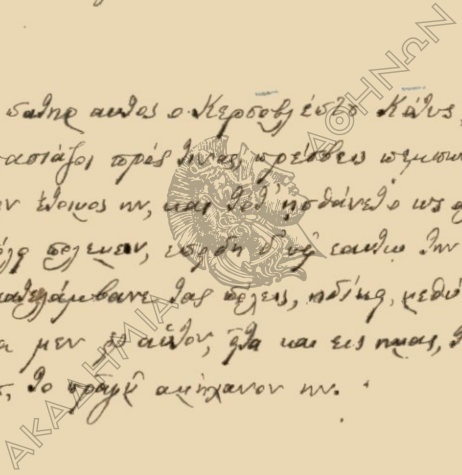 πατηρ αυτος ο Κερσοβλέπτο Κότυς,
τασιάζοι πρός τινας, πρέσβεις πεμπων
ν έτοιμος ην, και τοτ' ησθάνετο ως α
πολεμειν, επειδη δ' υφ' εαυτω την
κατελάμβανε τας πόλεις, ηδίκει, μεθύ
α μεν εις αυτον, ειτα και εις ημας, τ
το πραγμ' αμήχανον ην.
ΑΚΑΔΗΜΙΑ ΑΘΗΝΩΝ